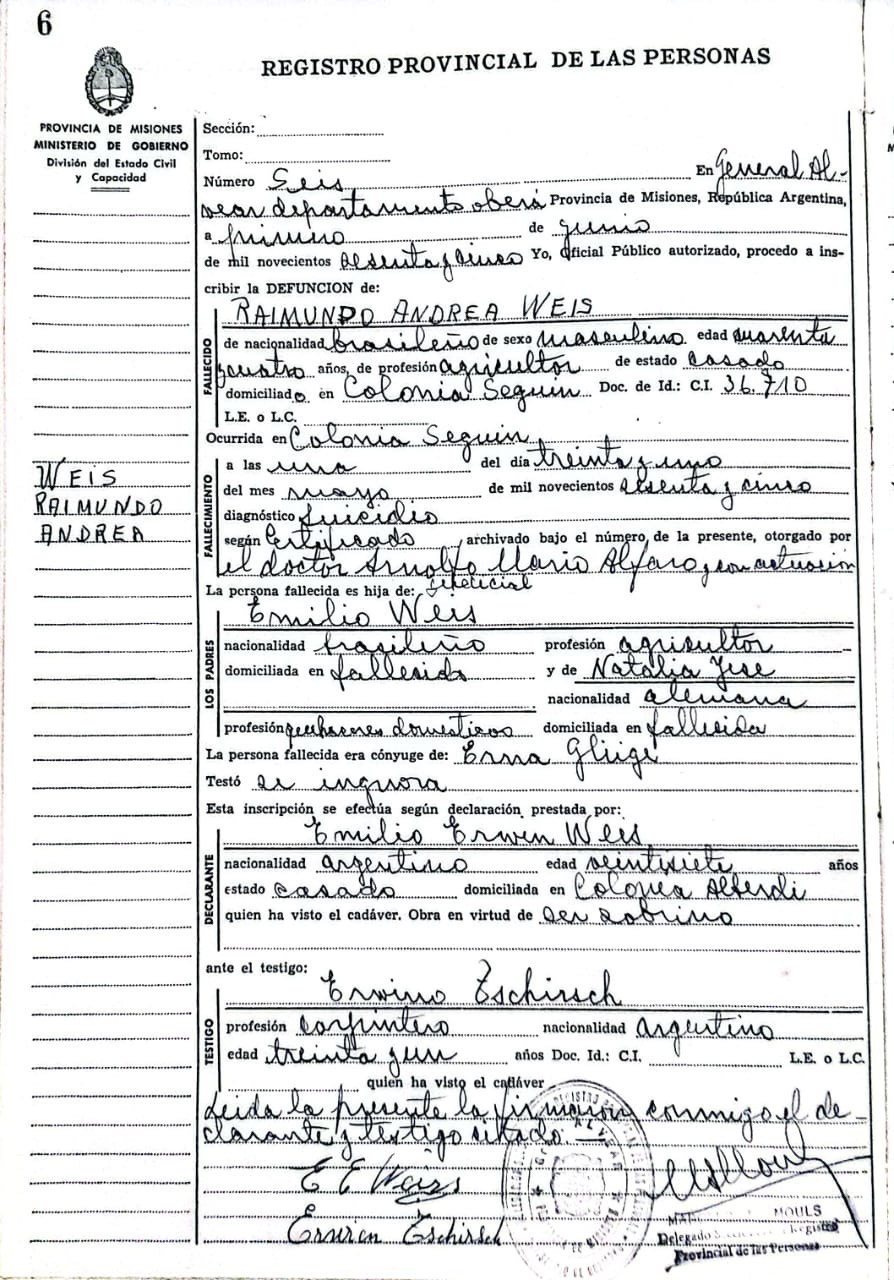 6
REGISTRO PROVINCIAL DE LAS PERSONAS
PROVINCIA DE MISIONES
MINISTERIO DE GOBIERNO
División del Estado Civil
y Capacidad
Sección:
Tomo:
Número Seis En General Al-
vear departamento oberá Provincia de Misiones, República Argentina,
a primero de junio
de mil novecientos sesenta y cinco Yo, Oficial Público autorizado, procedo a ins-
cribir la DEFUNCION de:
RAIMUNDO ANDREA WEIS
FALLECIDO
de nacionalidad brasileño de sexo masculino edad cuarenta
y cuatro años, de profesión agricultor de estado casado
domiciliado en Colonia Seguin Doc. de Id.: C.I. 36.710
L.E. o L.C.
Ocurrida en Colonia Seguin
WEIS
RAIMUNDO
ANDREA
FALLECIMIENTO
a las una del día treinta y uno
del mes mayo de mil novecientos sesenta y cinco
diagnóstico suicidio
según Certificado archivado bajo el número de la presente, otorgado por
el doctor Arnolfo Mario Alfaro y con actuación
La persona fallecida es hija de:
Emilio Weis
LOS PADRES
nacionalidad brasileño profesión agricultor
domiciliada en fallesido y de Natalia
nacionalidad alemana
profesión quehaseres domesticos domiciliada en fallesida
La persona fallecida era cónyuge de: Erna
Testó se ingnora
Esta inscripción se efectúa según declaración prestada por:
Emilio Erwin Weis
DECLARANTE
nacionalidad argentino edad veintisiete años
estado casado domiciliada en Colonia Alberdi
quien ha visto el cadáver. Obra en virtud de ser sobrino
ante el testigo:
Erwino Tschirsch
TESTIGO
profesión carpintero nacionalidad argentino
edad treinta y un años Doc. Id.: C.I. L.E. o L.C.
quien ha visto el cadáver
Leida la presente la firmaron conmigo el de-
clarante y testigo sitado
E E Weiss
Tschirsch
MOULS
Delegado Registro
Provincial de las Personas